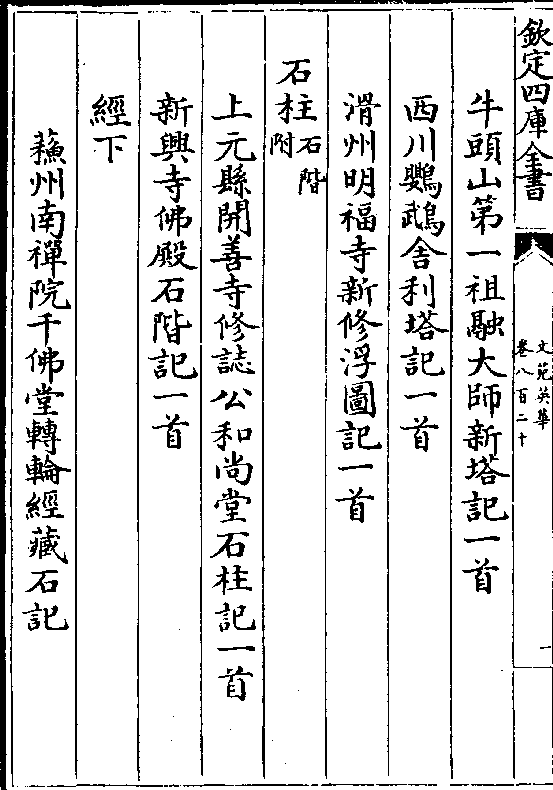 欽定四庫全書
文苑英華
卷八百二十
一
牛頭山第一祖融大師新塔記一首
西川鸚鵡舍利塔記一首
滑州明福寺新修浮圖記一首
石柱石階附
上元縣開善寺修誌公和尚堂石柱記一首
新興寺佛殿石階記一首
經下
蘓州南禪院千佛堂轉輪經藏石記